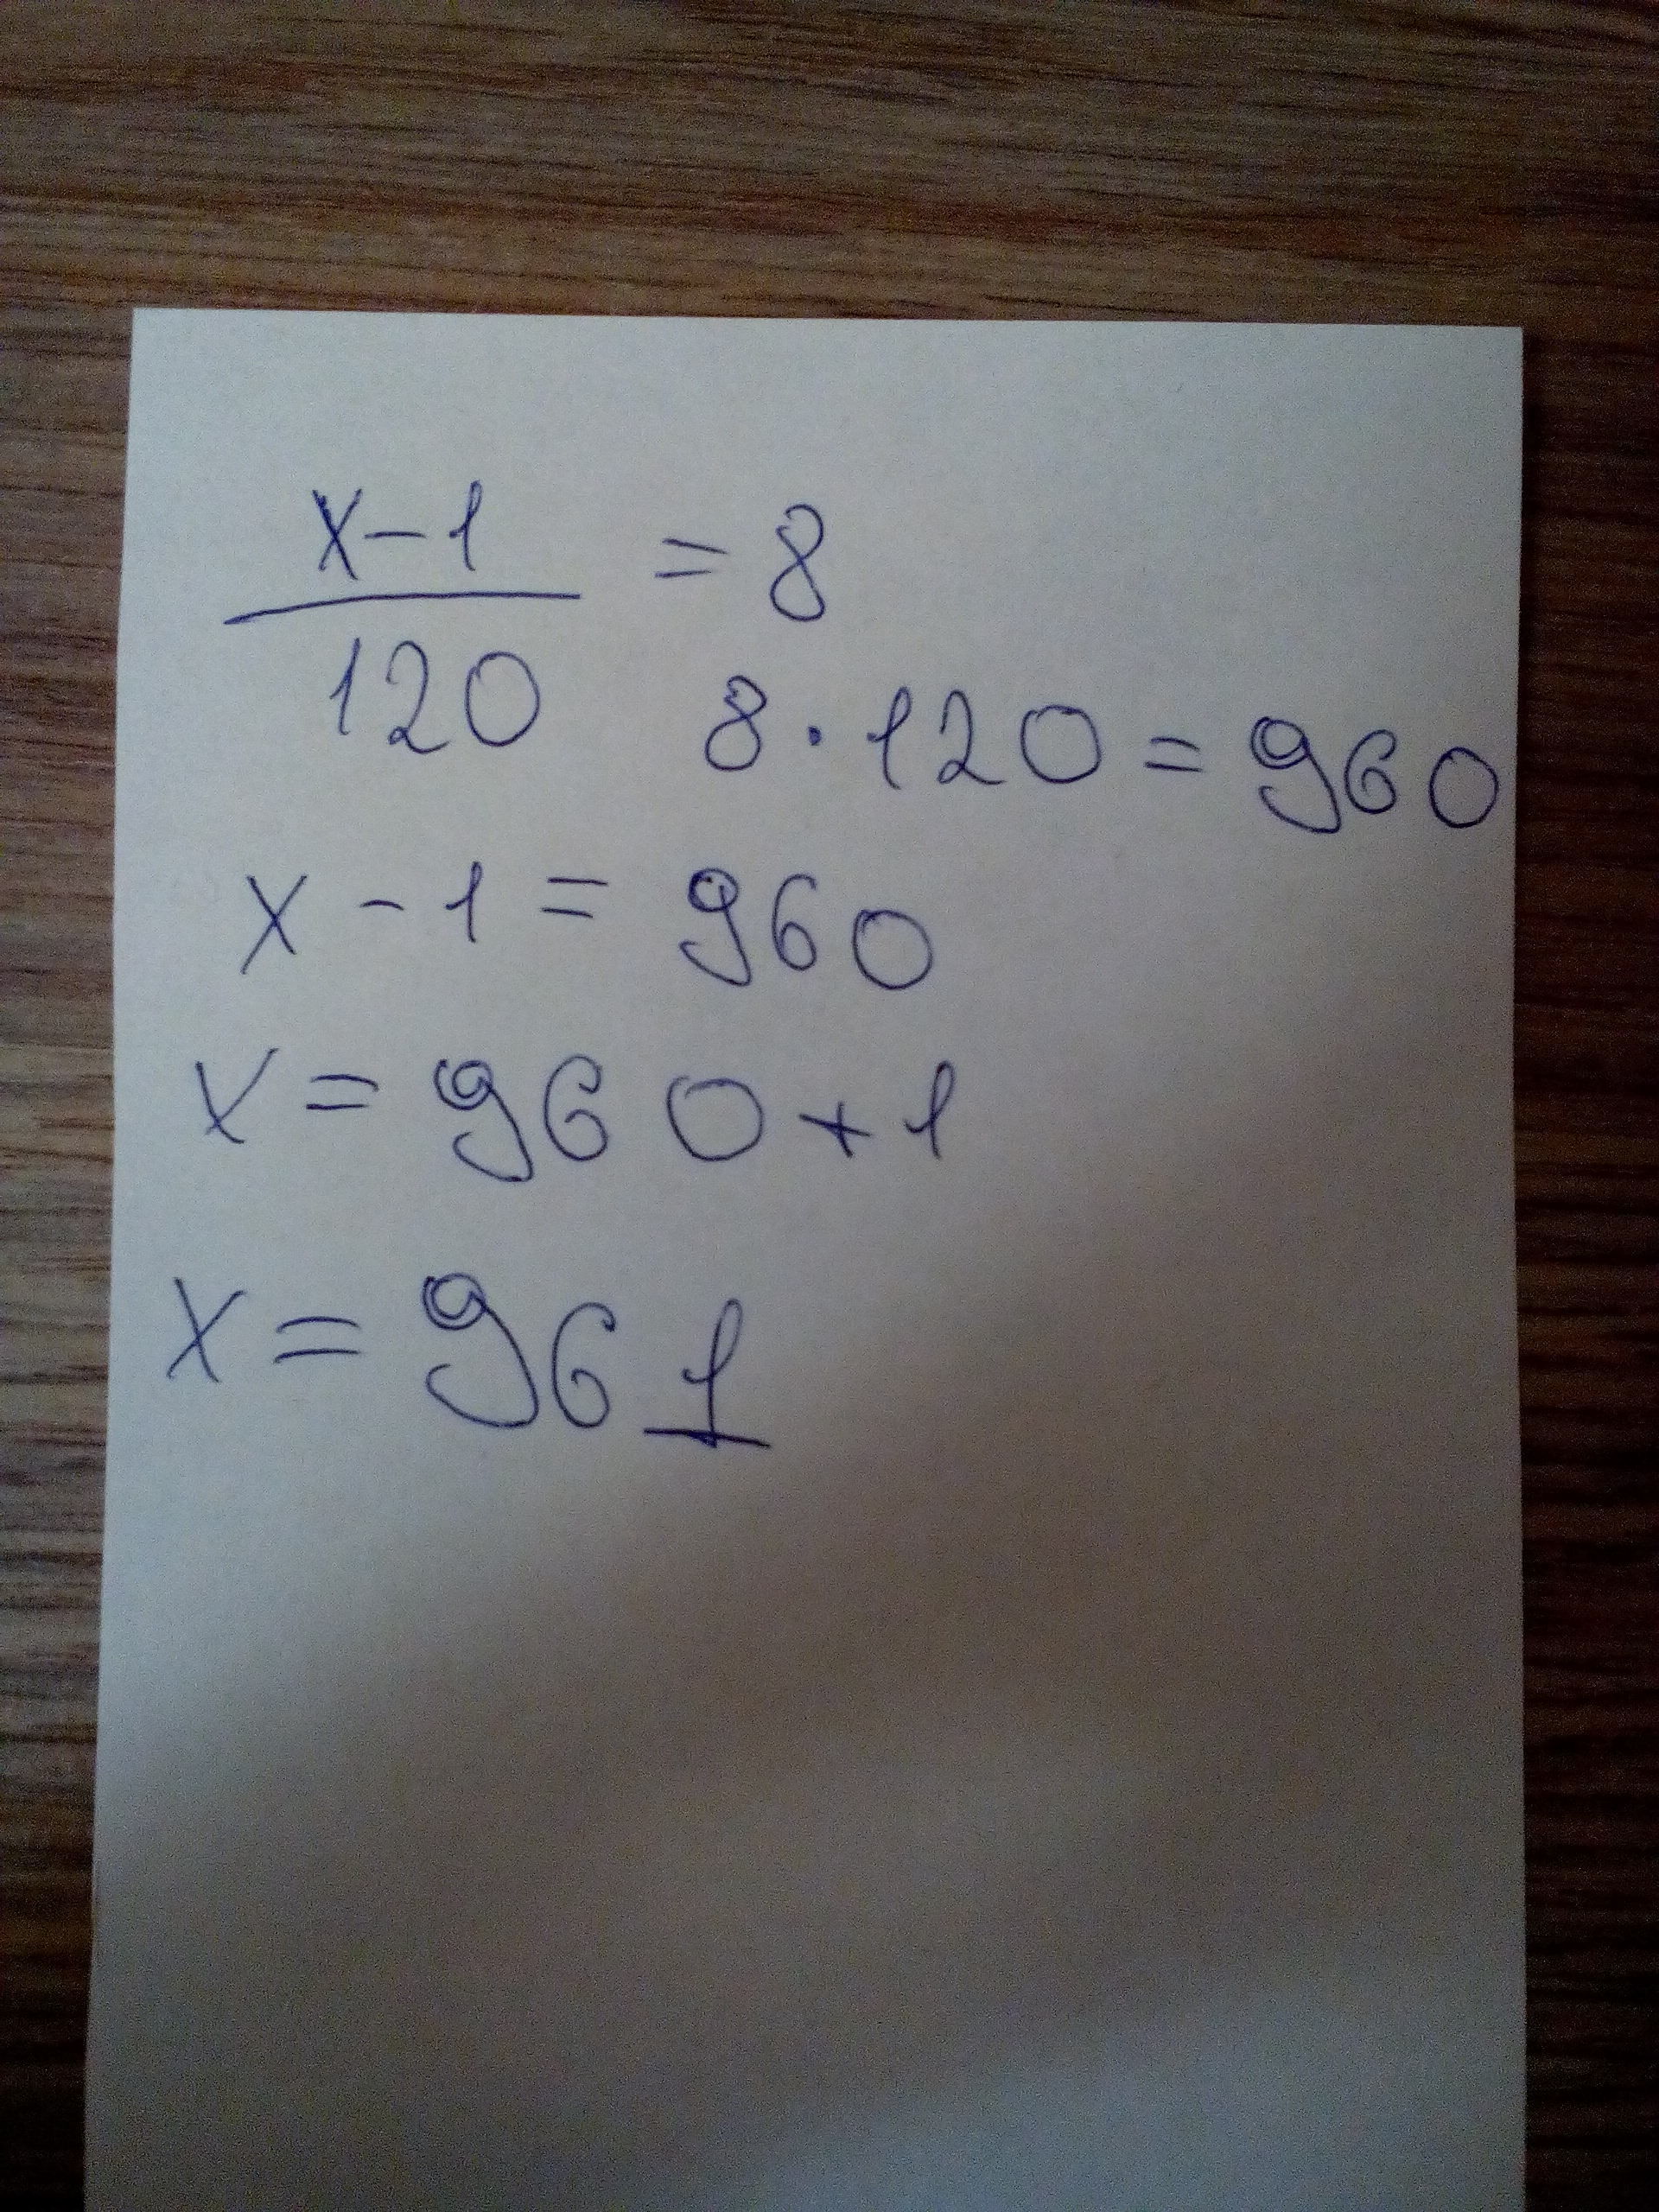 x-1 = 8
120
8 · 120 = 960
x - 1 = 960
x = 960 + 1
x = 961